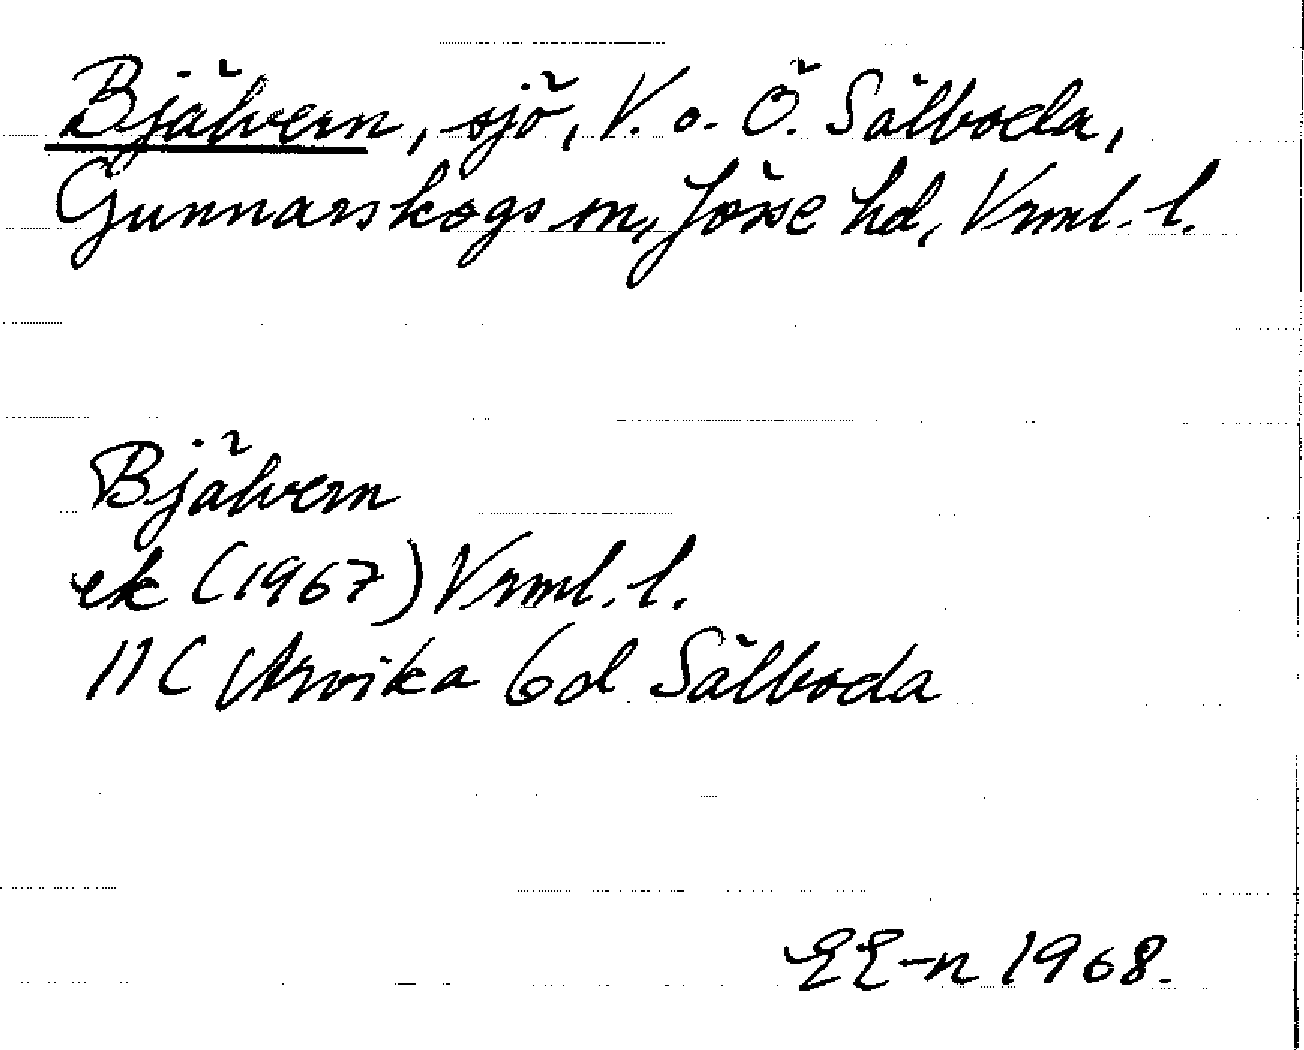 Bjälvern, sjö, V. o. Ö. Sälboda,
Gunnarskogs sn, Jösse hd, Vrml. l.
Bjälvern
ek (1967) Vrml. l.
11C Arvika 6d Sälboda
EE-n 1968.